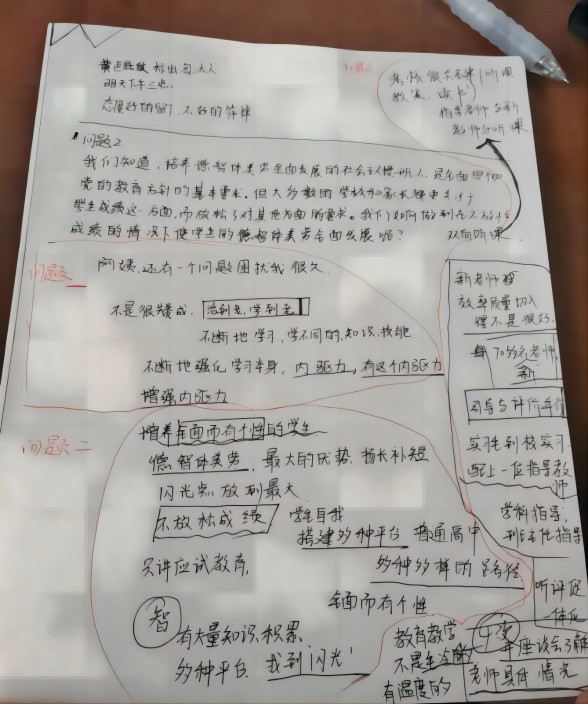 黄色底纹 标出
明天下午三点
态度好的留了,不好的作肆
问题
很大
听课
教案、读书
指导老师与新
教师与听课
问题2
我们知道,培养德智体美劳全面发展的社会主义接班人,是全面贯彻
党的教育方针的基本要求。但大多数的学校和家长都更关注于
学生成绩这一方面,而放松了对其他方面的要求。我们如何做到在不放松
成绩的情况下使学生的德智体美劳全面发展呢?
双向听课
问题
阿姨,还有一个问题困扰我很久
不是很赞成. 活到老,学到老
不断地学习,学不同的知识,技能
不断地强化学习本身,内驱力,有这个内驱力
增强内驱力
新老师
放率质量切入
得不是很好
70多名老师
新
司导与评价工作
实习生到校实习
配上一位指导教
师
学科指导,
班主任指导
听评
一体化
年座谈会了解
老师具体情况
问题二
培养全面而有个性的学生
德智体美劳,最大的优势,扬长补短
闪光点放到最大
不放松成绩 学生自我
搭建多种平台 普通高中
只讲应试教育, 多种多样的路径
全面而有个性
智
有大量知识积累
多种平台,找到闪光
教育教学
不是生冷的
有温度的